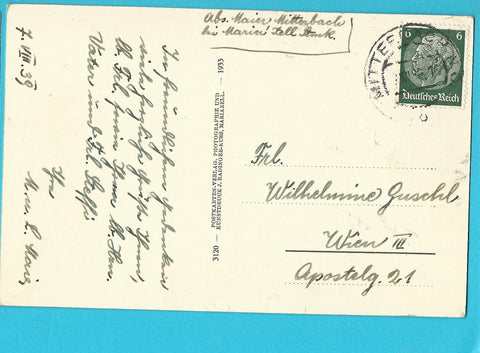 Abs. Maier Mitterbach
bei Maria Zell Stmk.
7. VIII. 39
In freundlichem Gedenken
viele herzliche Grüße Ihnen,
lb. Frl. sowie Ihrem lb. Herrn
Vater und Frl. Steffi
Ihre
M. u. L. Maier
3120 — POSTKARTEN-VERLAG, PHOTOGRAPHIE UND — 1933
KUNSTDRUCK J. KUSS, MARIAZELL
6 6
Deutsches Reich
MITTERB
Frl.
Wilhelmine Guschl
Wien III
Apostelg. 21